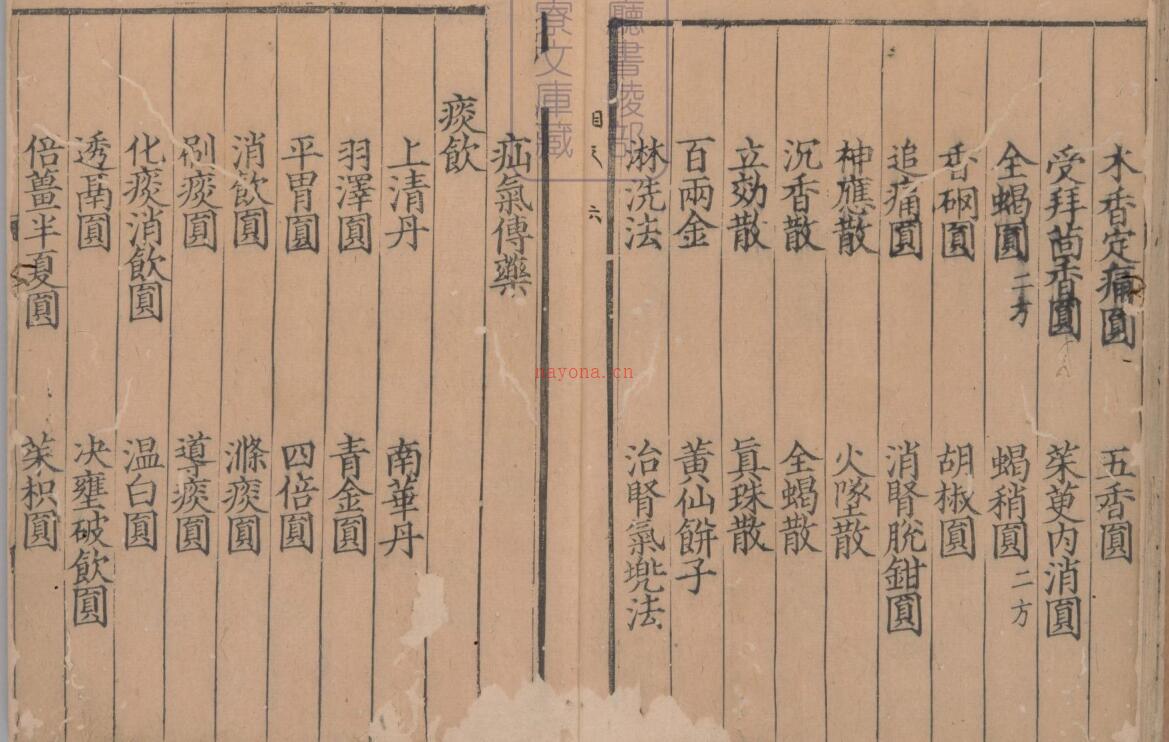 木香定痛圓 五香圓
受拜茴香圓 茱萸内消圓
全蝎圓二方 蝎稍圓二方
香硇圓 胡椒圓
追痛圓 消腎脫鉗圓
神應散 火墜散
沉香散 全蝎散
立効散 眞珠散
百兩金 黃仙餅子
淋洗法 治腎氣㙡法
六
廳書陵部
寮文庫藏
疝氣傳藥
痰飲
上清丹 南華丹
羽澤圓 青金圓
平胃圓 四倍圓
消飲圓 滌痰圓
剜痰圓 導痰圓
化痰消飲圓 温白圓
透鬲圓 决壅破飲圓
倍薑半夏圓 茱枳圓
nayona.cn